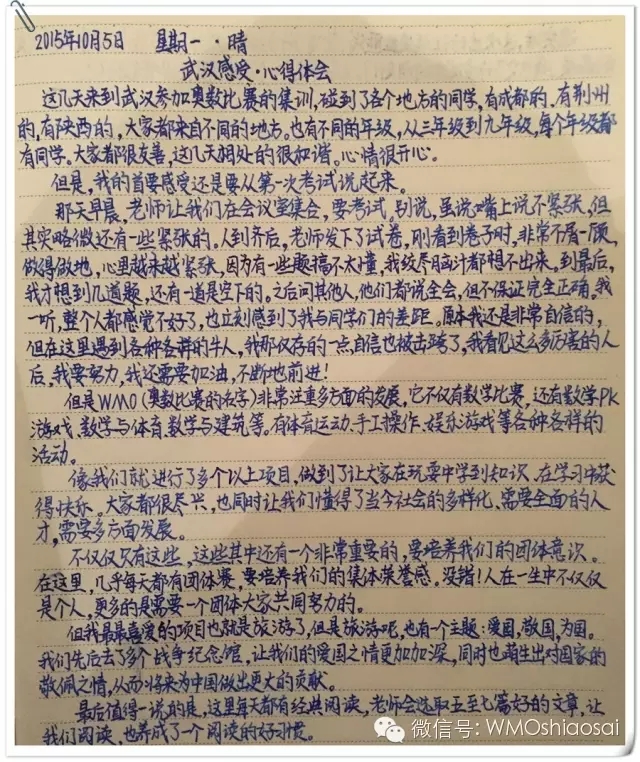 2015年10月5日 星期一·晴
武汉感受·心得体会
这几天来到武汉参加奥数比赛的集训,碰到了各个地方的同学,有成都的、有荆州
的,有陕西的,大家都来自不同的地方。也有不同的年级,从三年级到九年级,每个年级都
有同学。大家都很友善,这几天相处的很和谐。心情很开心。
但是,我的首要感受还是要从第一次考试说起来。
那天早晨,老师让我们在会议室集合,要考试。别说,虽说嘴上说不紧张,但
其实略微还有一些紧张的。人到齐后,老师发下了试卷。刚看到卷子时,非常不屑一顾,
做得做地,心里越来越紧张,因为有一些题搞不太懂,我绞尽脑汁都想不出来。到最后,
我才想到几道题,还有一道是空下的。之后问其他人,他们都说全会,但不保证完全正确。我
一听,整个人都感觉不好了,也立刻感到了我与同学们的差距。原本我还是非常自信的,
但在这里遇到各种各样的牛人,我那仅存的一点自信也被击跨了,我看见这么多厉害的人
后,我要努力,我还需要加油,不断地前进!
但是WMO(奥数比赛的名字)非常注重多方面的发展,它不仅有数学比赛,还有数学PK
游戏、数学与体育、数学与建筑等。有体育运动、手工操作、娱乐游戏等各种各样的
活动。
像我们就进行了多个以上项目,做到了让大家在玩耍中学到知识、在学习中获
得快乐。大家都很尽兴,也同时让我们懂得了当今社会的多样化、需要全面的人
才,需要多方面发展。
不仅仅只有这些,这些其中还有一个非常重要的,要培养我们的团体意识。
在这里,几乎每天都有团体赛,要培养我们的集体荣誉感。没错!人在一生中不仅仅
是个人,更多的是需要一个团体大家共同努力的。
但我最最喜爱的项目也就是旅游了,但是旅游呢,也有一个主题:爱国,敬国,为国。
我们先后去了多个战争纪念馆,让我们的爱国之情更加加深,同时也萌生出对国家的
敬佩之情,从而将来为中国做出更大的贡献。
最后值得一说的是,这里每天都有经典阅读,老师会选取五至七篇好的文章,让
我们阅读,也养成了一个阅读的好习惯。
微信号: WMOshiaosai